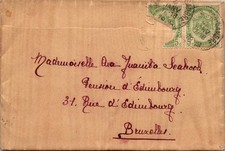 Mademoiselle Eva Juanita Seahock
Pension d'Edimbourg
31. Rue d'Edimbourg
Bruxelles.